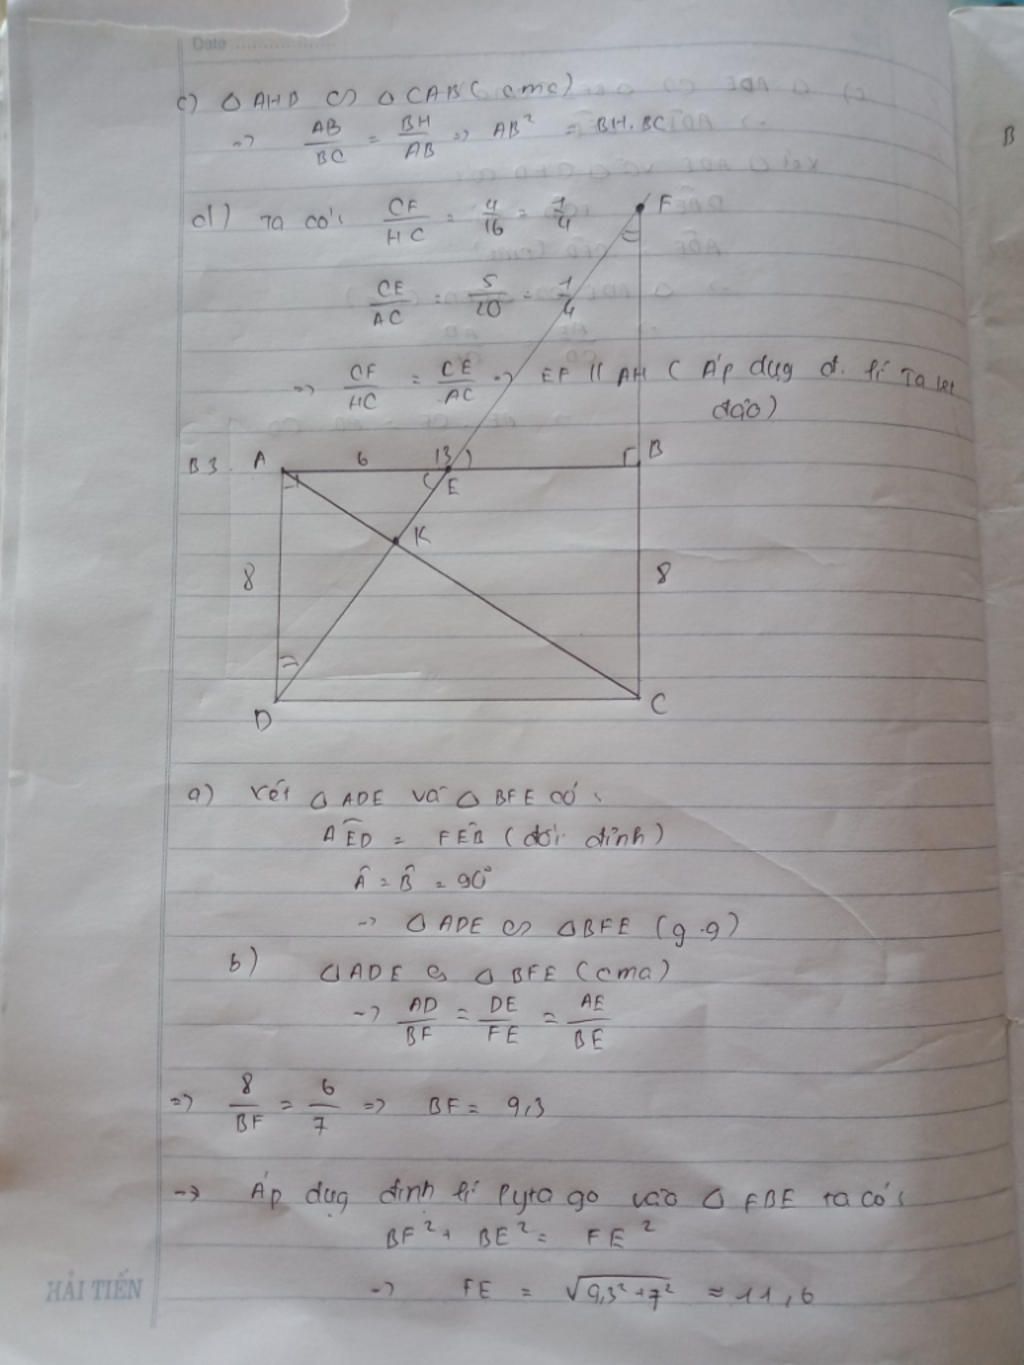 Date
c) △ AHB ∽ △ CAB (cmc)
=> AB/BC = BH/AB => AB² = BH.BC
B
d) Ta có: CF/HC = 4/16 = 1/4
F
CE/AC = 5/20 = 1/4
=> CF/HC = CE/AC => EF // AH ( Áp dụg đ. lí Ta let
đảo)
B3. A 6 13 B
E
K
8 8
D C
a) Xét △ ADE và △ BFE có:
AÊD = FÊB (đối đỉnh)
Â = B̂ = 90°
-> △ ADE ∽ △BFE (g.g)
b) △ADE ∽ △ BFE (cma)
-> AD/BF = DE/FE = AE/BE
=> 8/BF = 6/7 => BF = 9,3
-> Áp dụg định lí Pytago vào △ FBE ta có:
BF² + BE² = FE²
-> FE = √9,3²+7² ≈ 11,6
HẢI TIẾN